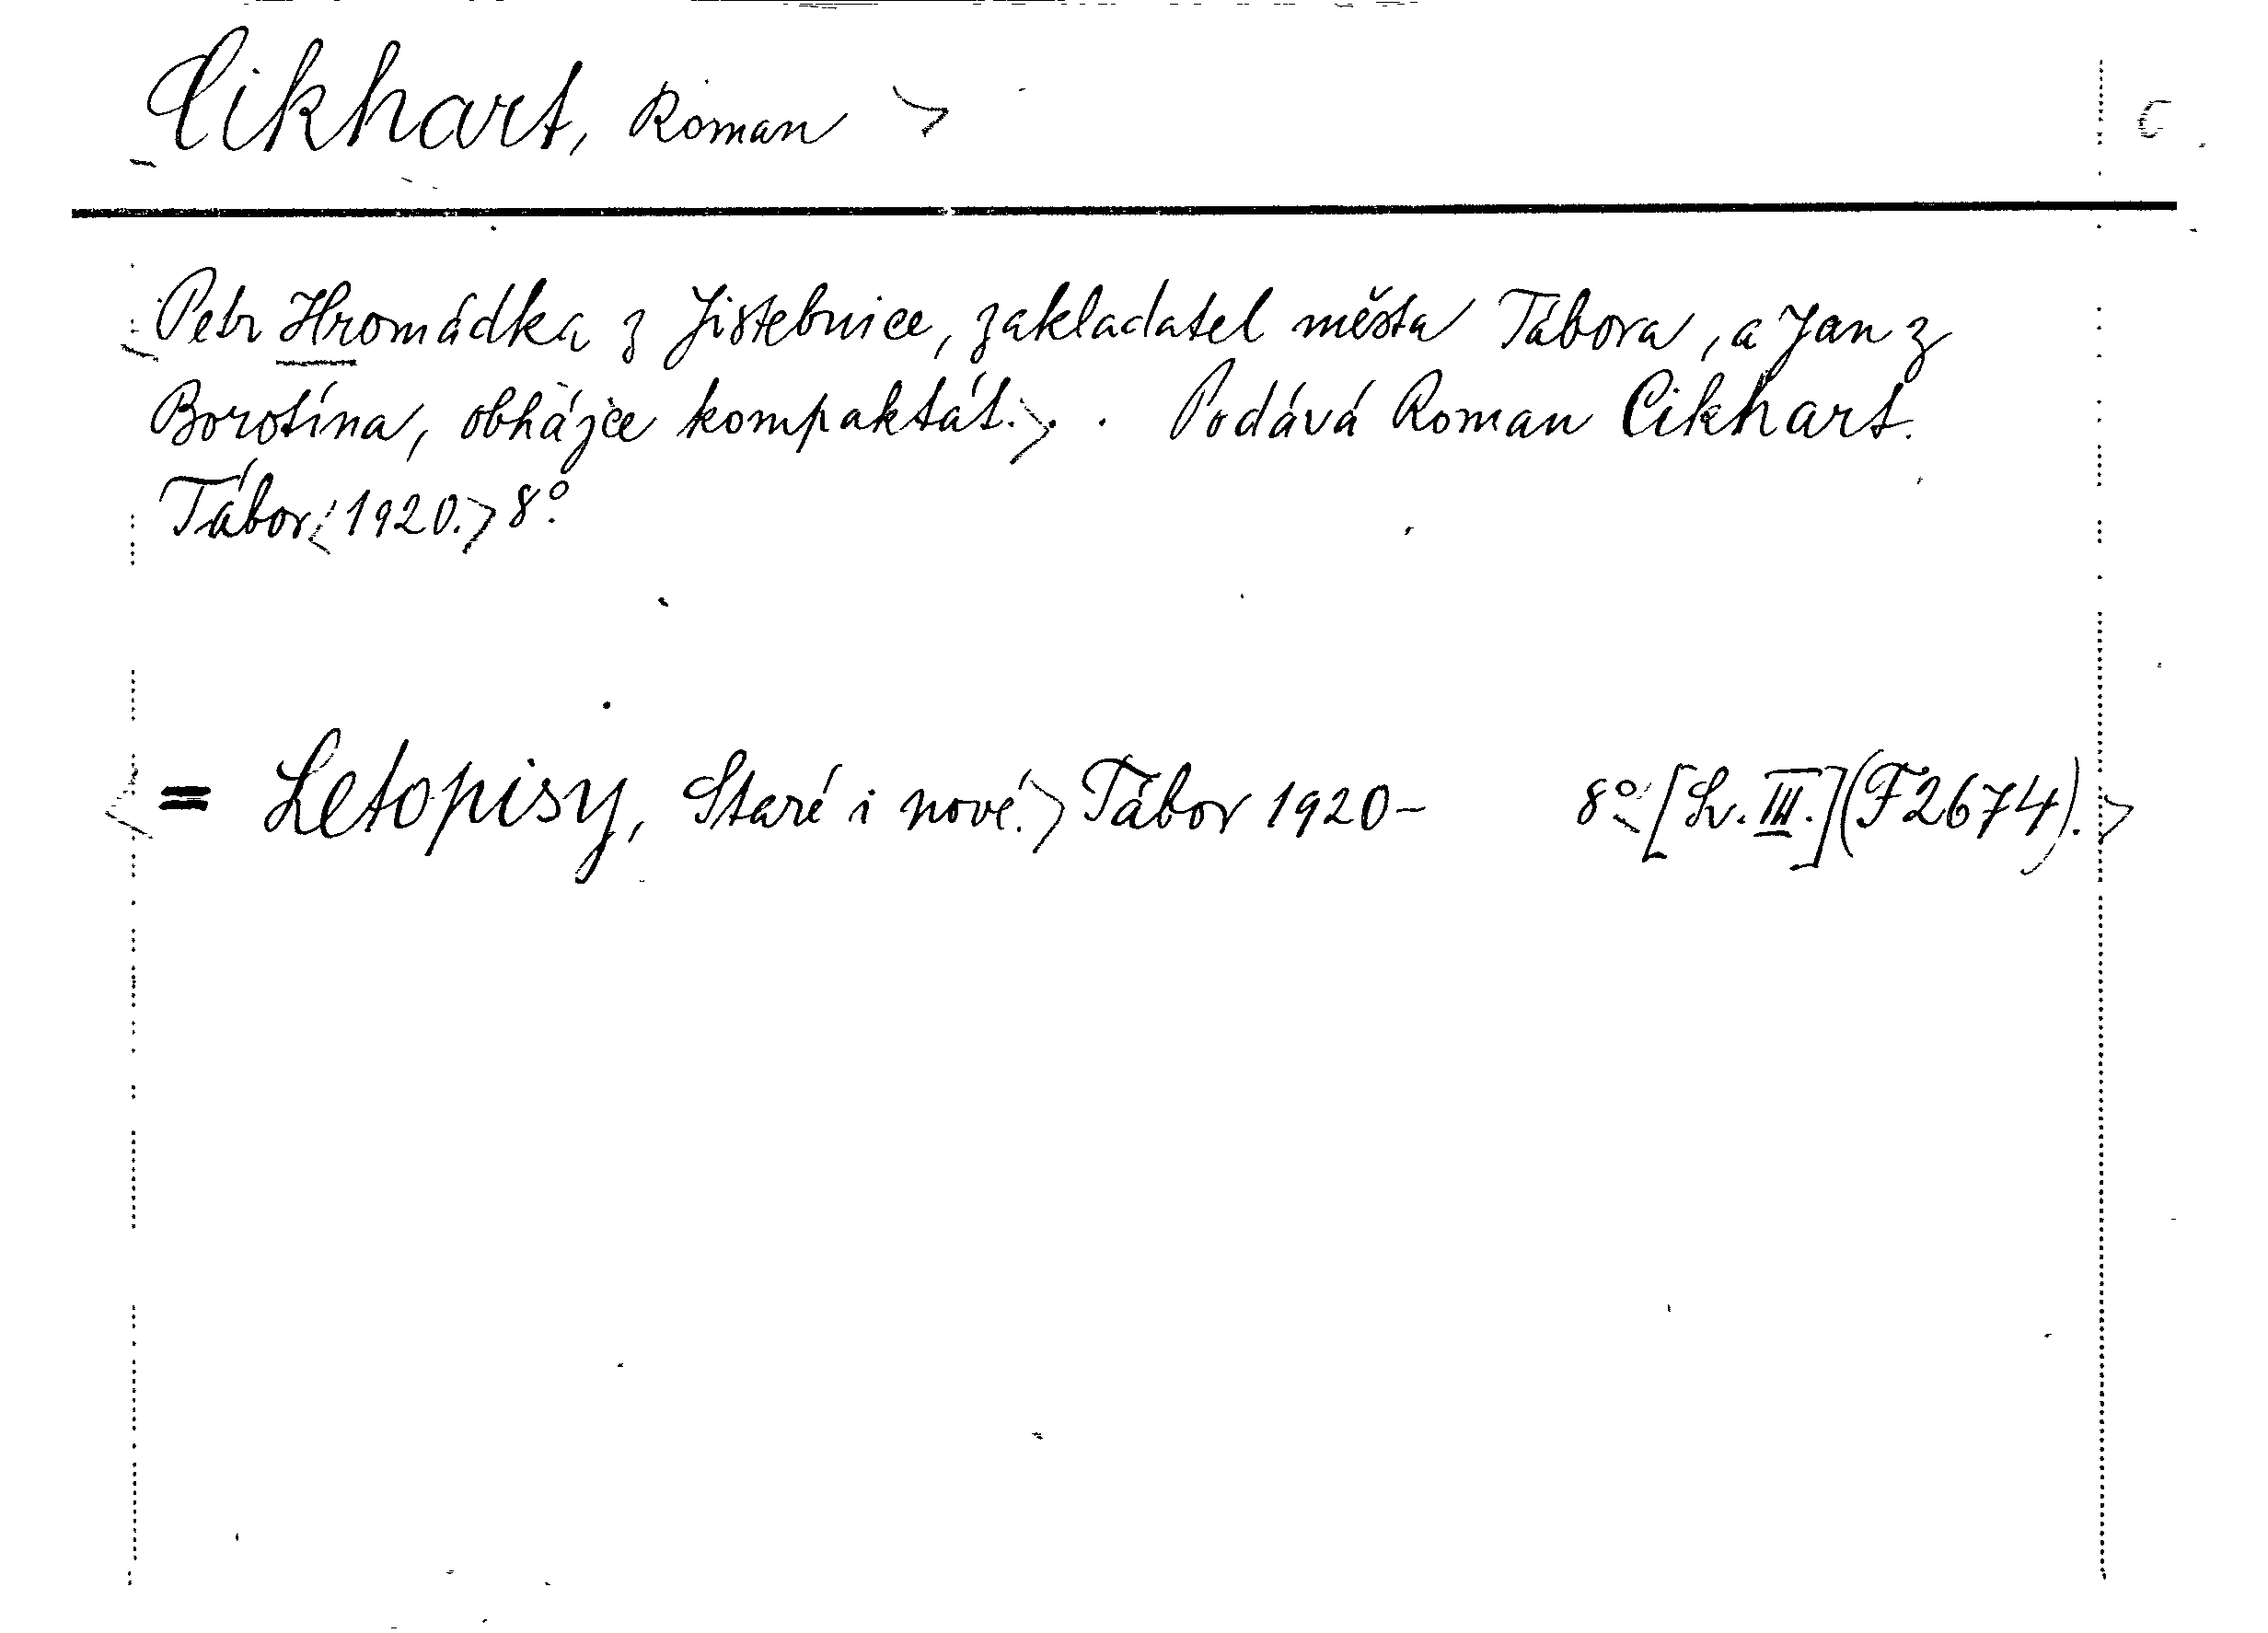 Cikhart, Roman
C
Petr Hromádka z Jistebnice, zakladatel města Tábora, a Jan z
Borotína, obhájce kompaktát. . . Podává Roman Cikhart.
Tábor 1920. 8°.
= Letopisy, Staré i nové. Tábor 1920- 8°. [Sv. III.] (F2674).